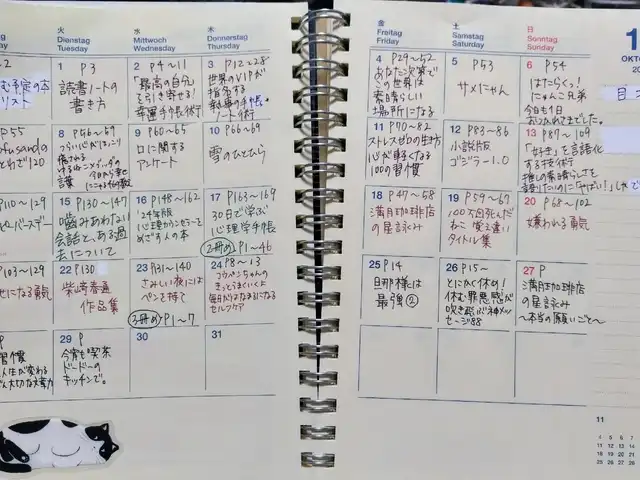 火 水 木
Dienstag Mittwoch Donnerstag
Tuesday Wednesday Thursday
1 P3
読書ノートの
書き方
2 P4~11
「最高の自分
を引き寄せる!
幸運手帳術」
3 P12~28
世界のVIPが
指名する
執事の手帳・
ノート術
P55
ofusandの
ことわざ120
8 P56~59
9 P60~65
口に関する
アンケート
10 P66~69
雪のひとひら
P110~129
15 P130~147
噛みあわない
会話と、ある過
去について
16 P148~162
'24年版
心理カウンセラーを
めざす人の本
17 P163~169
30日で学ぶ
心理学手帳
2冊め P1~46
P103~129
せになる勇気
22 P130
柴崎春通
作品集
23 P131~140
さみしい夜には
ペンを持て
2冊め P1~7
24 P8~13
コウペンちゃんの
きっとうまくいくよ
毎日がしあわせになる
セルフケア
習慣
人生が変わる
29 P
今宵も喫茶
ドードーの
キッチンで。
30
31
金 土 日
Freitag Samstag Sonntag
Friday Saturday Sunday
4 P29~52
あなた次第で
この世界は
素晴らしい
場所になる
5 P53
サメにゃん
6 P54
はたらっく!
にゃんこ兄弟
今日も1日
おつかれさまでした。
11 P70~82
ストレスゼロの生き方
心が軽くなる
100の習慣
12 P83~86
小説版
ゴジラ-1.0
13 P87~109
「好き」を言語化
する技術
推しの素晴らしさを
語りたいのに「やばい!」しかでてこない
18 P47~58
満月珈琲店
の星詠み
19 P59~67
100万回死んだ
ねこ 覚え違い
タイトル集
20 P68~102
嫌われる勇気
25 P14
旦那様は
最強②
26 P15~
とにかく休め!
休む罪悪感が
吹き飛ぶ神メッ
セージ88
27 P
満月珈琲店
の星詠み
~本当の願いごと~
OKTO
11
4 5 6 7
11 12 13 14
18 19 20 21
25 26 27 28